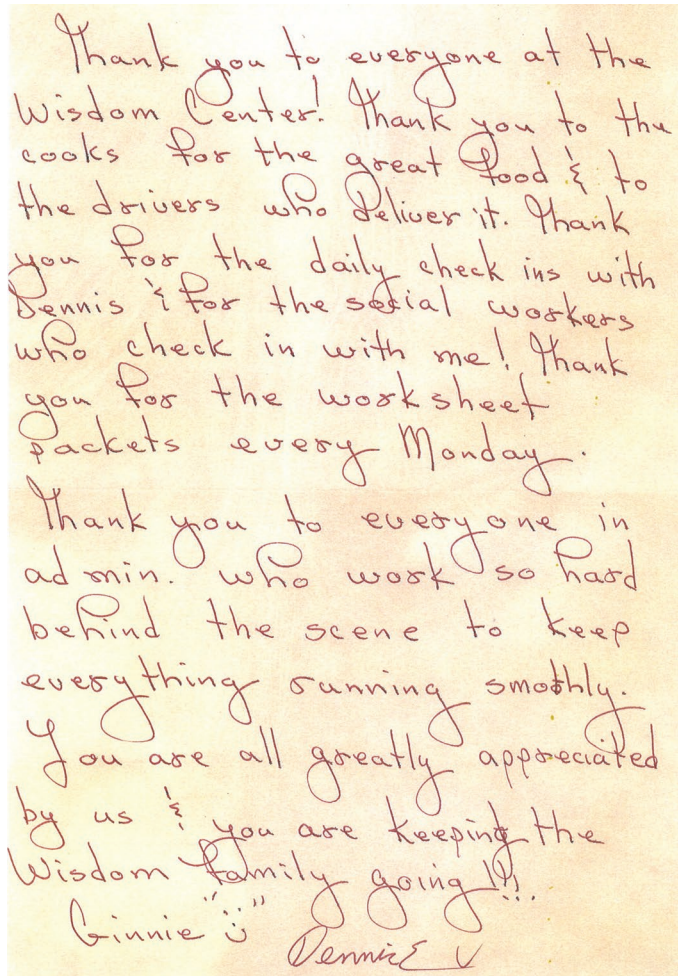 Thank you to everyone at the
Wisdom Center! Thank you to the
cooks for the great food & to
the drivers who deliver it. Thank
you for the daily check ins with
Dennis & for the social workers
who check in with me! Thank
you for the worksheet
packets every Monday.
Thank you to everyone in
admin. who work so hard
behind the scene to keep
everything running smothly.
You are all greatly appreciated
by us & you are keeping the
Wisdom family going!!!
Ginnie
Dennis